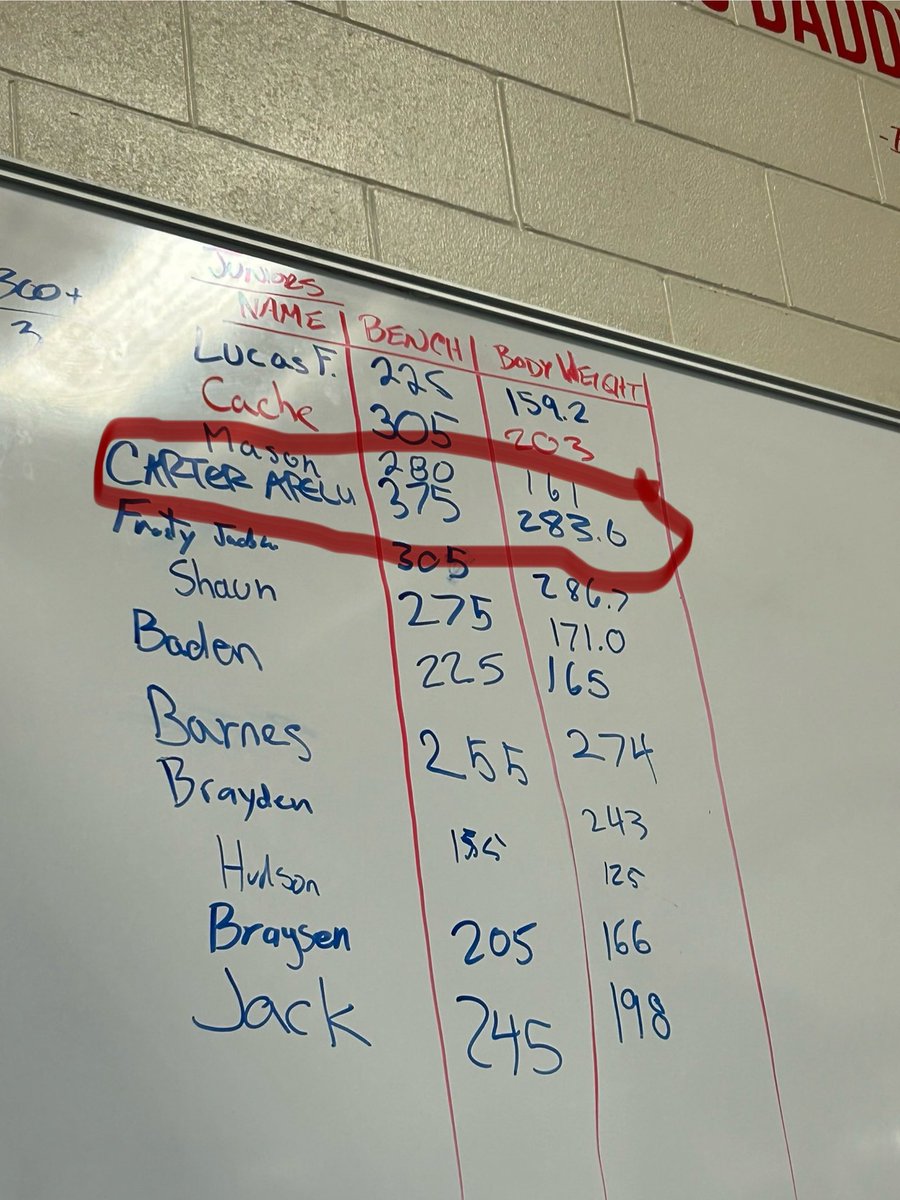 DADD
300+
3
JUNIORS
NAME BENCH BODY WEIGHT
Lucas F. 225 159.2
Cache 305 203
Mason 280 161
CARTER APELU 375 283.6
305 286.7
Shaun 275 171.0
Baden 225 165
Barnes 255 274
Brayden 243
Hudson 155 125
Braysen 205 166
Jack 245 198